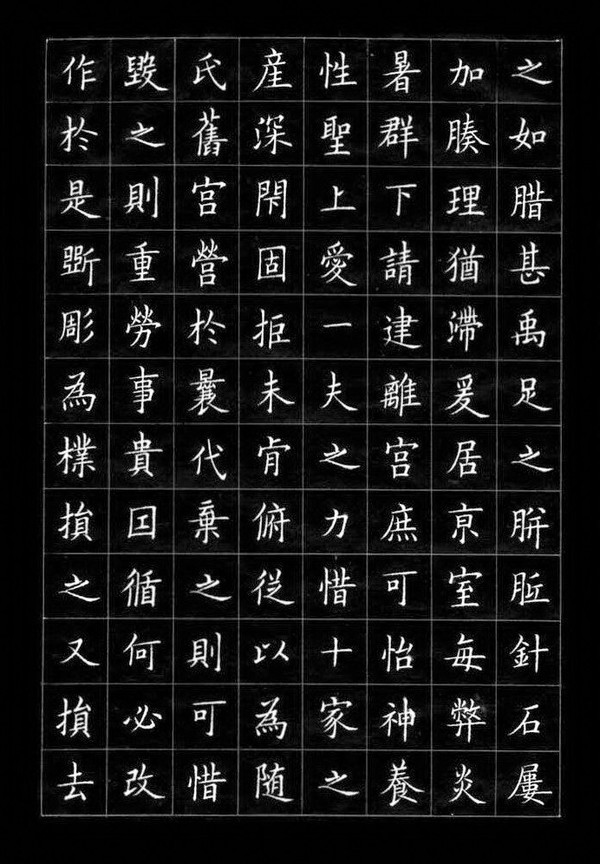 之如腊甚禹足之胼胝針石屢
加腠理猶滯爰居亰室每弊炎
暑群下請建離宮庶可怡神養
性聖上愛一夫之力惜十家之
産深閇固拒未肯俯従以為随
氏舊宮營於曩代棄之則可惜
毀之則重勞事貴囙循何必改
作於是斵彫為樸損之又損去